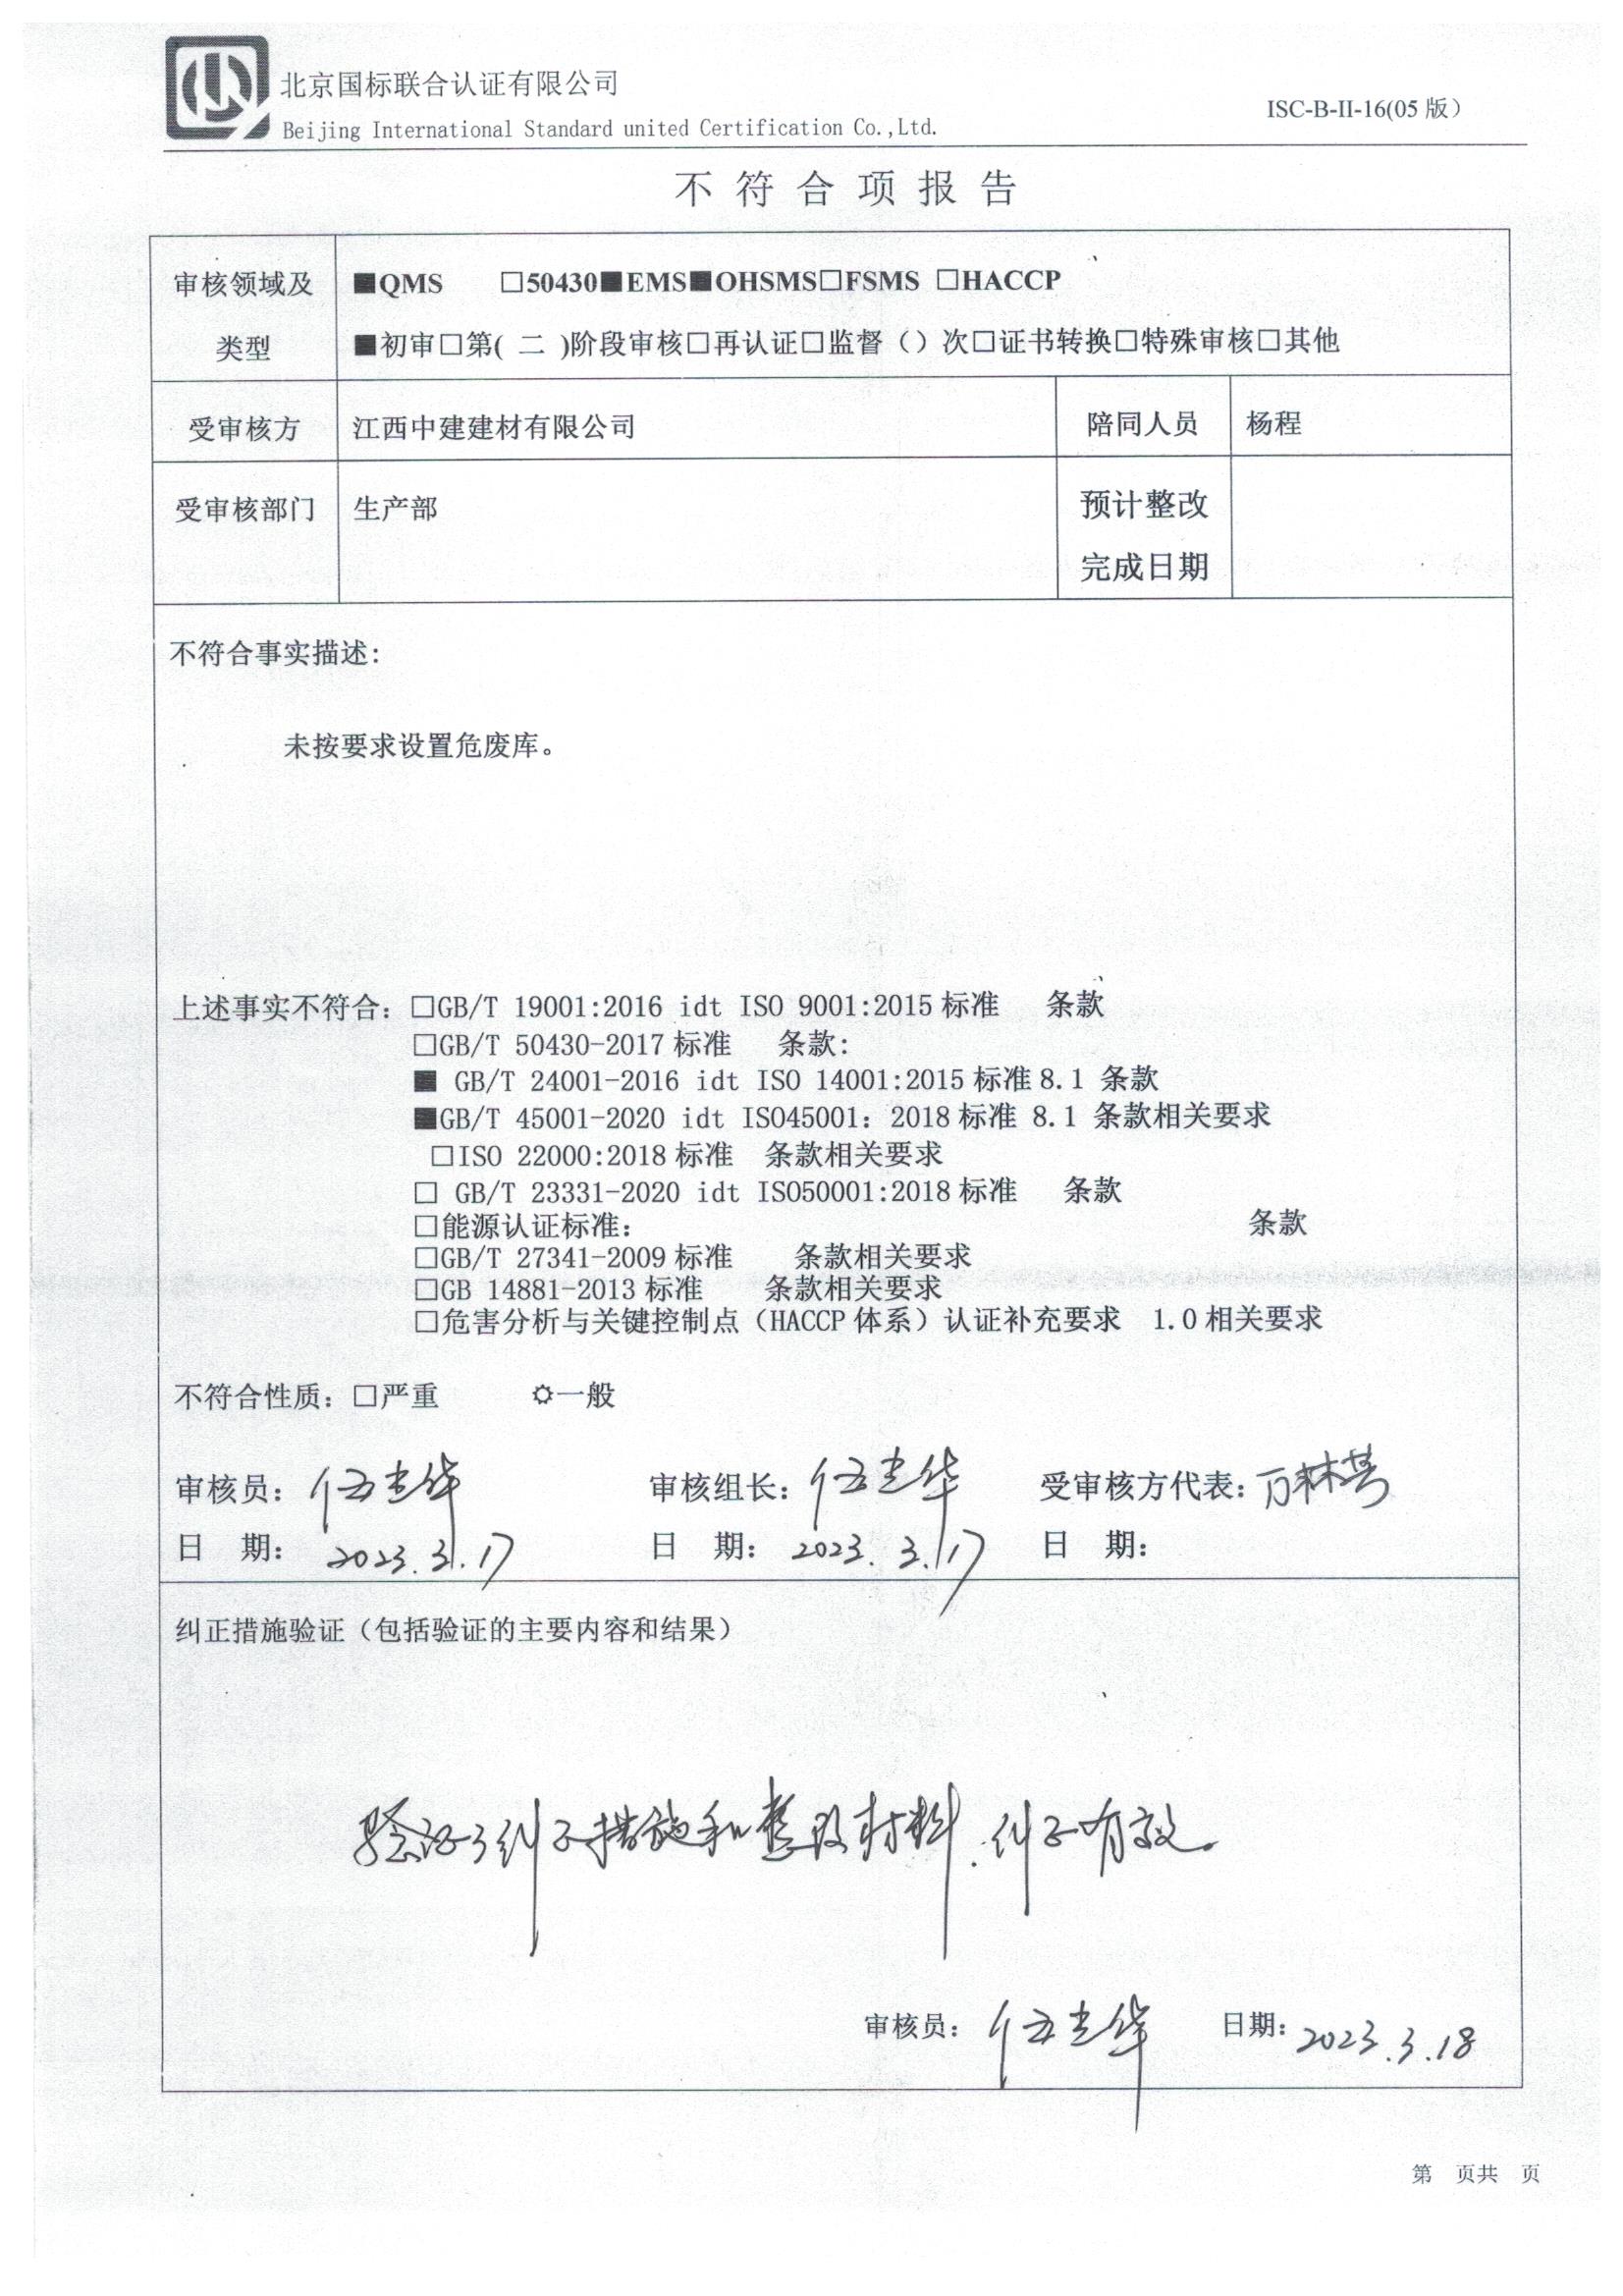 北京国标联合认证有限公司
Beijing International Standard united Certification Co.,Ltd.
ISC-B-II-16(05 版)
不符合项报告
审核领域及类型
■QMS □50430■EMS■OHSMS□FSMS □HACCP
■初审□第( 二 )阶段审核□再认证□监督（）次□证书转换□特殊审核□其他
受审核方 江西中建建材有限公司 陪同人员 杨程
受审核部门 生产部 预计整改完成日期
不符合事实描述:
未按要求设置危废库。
上述事实不符合: □GB/T 19001:2016 idt ISO 9001:2015 标准 条款
□GB/T 50430-2017 标准 条款:
■ GB/T 24001-2016 idt ISO 14001:2015 标准 8.1 条款
■GB/T 45001-2020 idt ISO45001: 2018 标准 8.1 条款相关要求
□ISO 22000:2018 标准 条款相关要求
□ GB/T 23331-2020 idt ISO50001:2018 标准 条款
□能源认证标准: 条款
□GB/T 27341-2009 标准 条款相关要求
□GB 14881-2013 标准 条款相关要求
□危害分析与关键控制点（HACCP 体系）认证补充要求 1.0 相关要求
不符合性质: □严重 ☼一般
审核员: 伍光华 审核组长: 伍光华 受审核方代表:
日 期: 2023.3.17 日 期: 2023.3.17 日 期:
纠正措施验证（包括验证的主要内容和结果）
验证了纠正措施和整改材料.纠正有效.
审核员: 伍光华 日期: 2023.3.18
第 页共 页